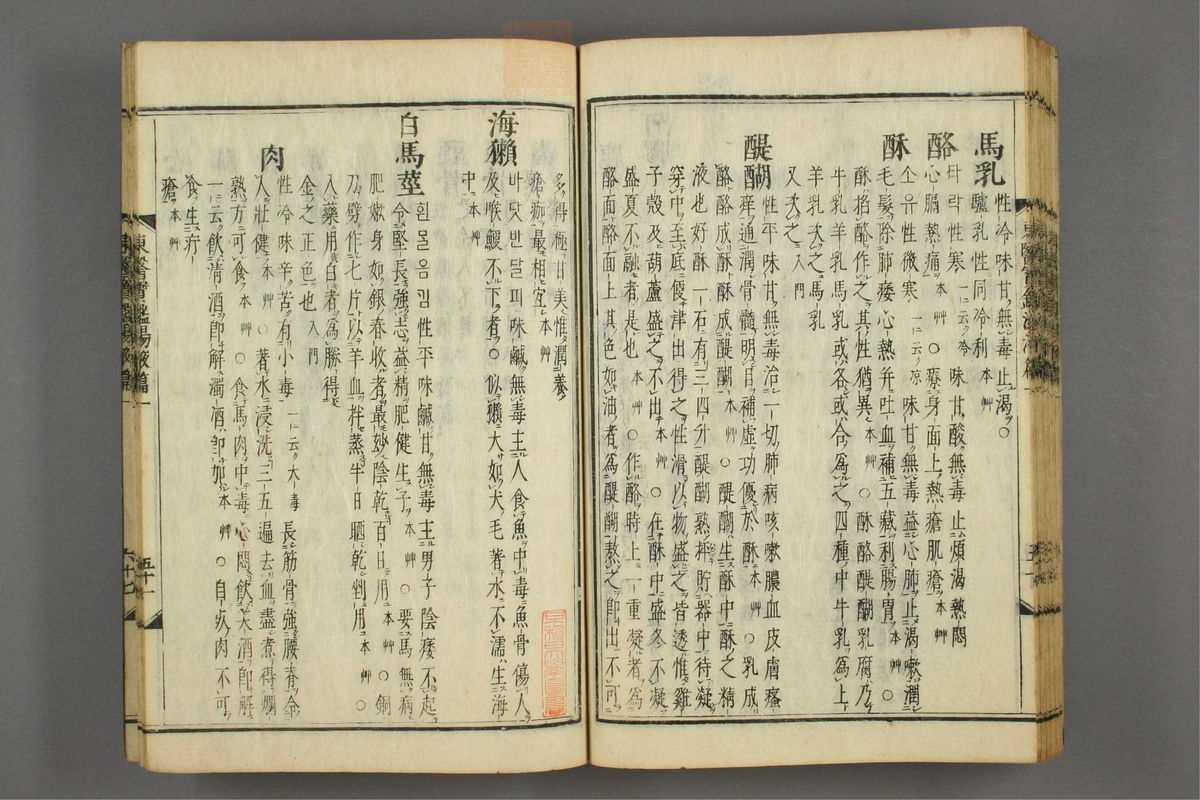 馬乳 性冷味甘無毒止渴○
驢乳性同冷利本艸
酪 타락性寒一云冷味甘酸無毒止煩渴熱悶
心膈熱痛本艸○療身面上熱瘡肌瘡本艸
酥 소유性微寒一云凉味甘無毒益心肺止渴嗽潤
毛髮除肺痿心熱幷吐血補五藏利腸胃本艸○
酥掐酪作之其性猶異本艸○酥酪醍醐乳腐乃
牛乳羊乳馬乳或各或合爲之四種中牛乳爲上
羊乳次之馬乳
又次之入門
醍醐 性平味甘無毒治一切肺病咳嗽膿血皮膚瘙
痒通潤骨髓明目補虛功優於酥本艸○乳成
酪酪成酥酥成醍醐本艸○醍醐生酥中酥之精
液也好酥一石有三四升醍醐熟抨貯器中待凝
穿中至底便津出得之性滑以物盛之皆透惟雞
子殼及葫蘆盛之不出本艸○在酥中盛冬不凝
盛夏不融者是也本艸○作酪時上一重凝者爲
酪面酪面上其色如油者爲醍醐熬之卽出不可
多得極甘美惟潤養
瘡痂最相宜本艸
海獺 바닷반달피味鹹無毒主人食魚中毒魚骨傷人
及喉鯁不下者○似獺大如犬毛著水不濡生海
中本艸
白馬莖 흰ᄆᆞᆯ음깅性平味鹹甘無毒主男子陰痿不起
令堅長強志益精肥健生子本艸○要馬無病
肥嫩身如銀春收者最妙陰乾百日用本艸○銅
刀劈作七片以羊血拌蒸半日晒乾剉用本艸○
入藥用白者爲勝得
金之正色也入門
肉 性冷味辛苦有小毒一云大毒長筋骨強腰脊令
人壯健本艸○著水浸洗三五遍去血盡煮得爛
熟方可食本艸○食馬肉中毒心悶飮美酒卽解
一云飮淸酒卽解濁酒卽加本艸○自死肉不可
食生疔
瘡本艸
東醫寶鑑湯液篇一
五十一
六十七